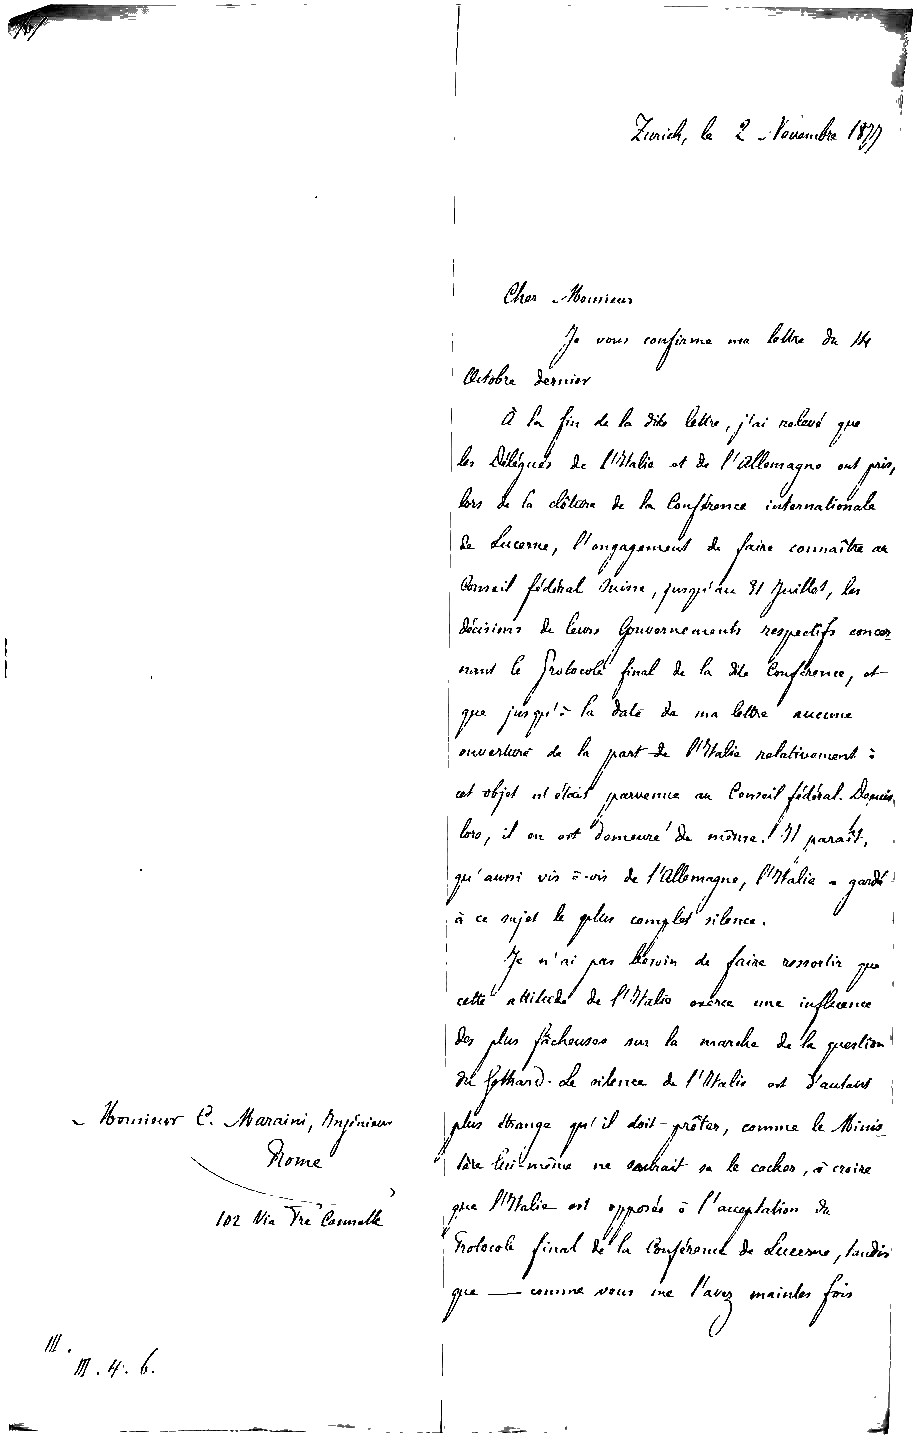 Zurich, le 2 Novembre 1877
Cher Monsieur
Je vous confirme ma lettre du 14
Octobre dernier
À la fin de la dite lettre, j'ai relevé que
les Délégués de l'Italie et de l'Allemagne ont pris,
lors de la clôture de la Conférence internationale
de Lucerne, l'engagement de faire connaître au
Conseil fédéral Suisse, jusqu'au 31 Juillet, les
décisions de leurs Gouvernements respectifs concer-
nant le Protocole final de la dite Conférence, et
que jusqu'à la date de ma lettre aucune
ouverture de la part de l'Italie relativement à
cet objet n'était parvenue au Conseil fédéral. Depuis
lors, il en est demeuré de même. Il paraît,
qu'aussi vis à-vis de l'Allemagne, l'Italie a gardé
à ce sujet le plus complet silence.
Je n'ai pas besoin de faire ressortir que
cette attitude de l'Italie exerce une influence
des plus fâcheuses sur la marche de la question
du Gothard. Le silence de l'Italie est d'autant
plus étrange qu'il doit prêter, comme le Minis-
tère lui-même ne saurait se le cacher, à croire
que l'Italie est opposée à l'acceptation du
Protocole final de la Conférence de Lucerne, tandis
que — comme vous me l'avez maintes fois
Monsieur C. Maraini, Ingénieur
Rome
102 Via Tre Cannelle
III.
III. 4. 6.